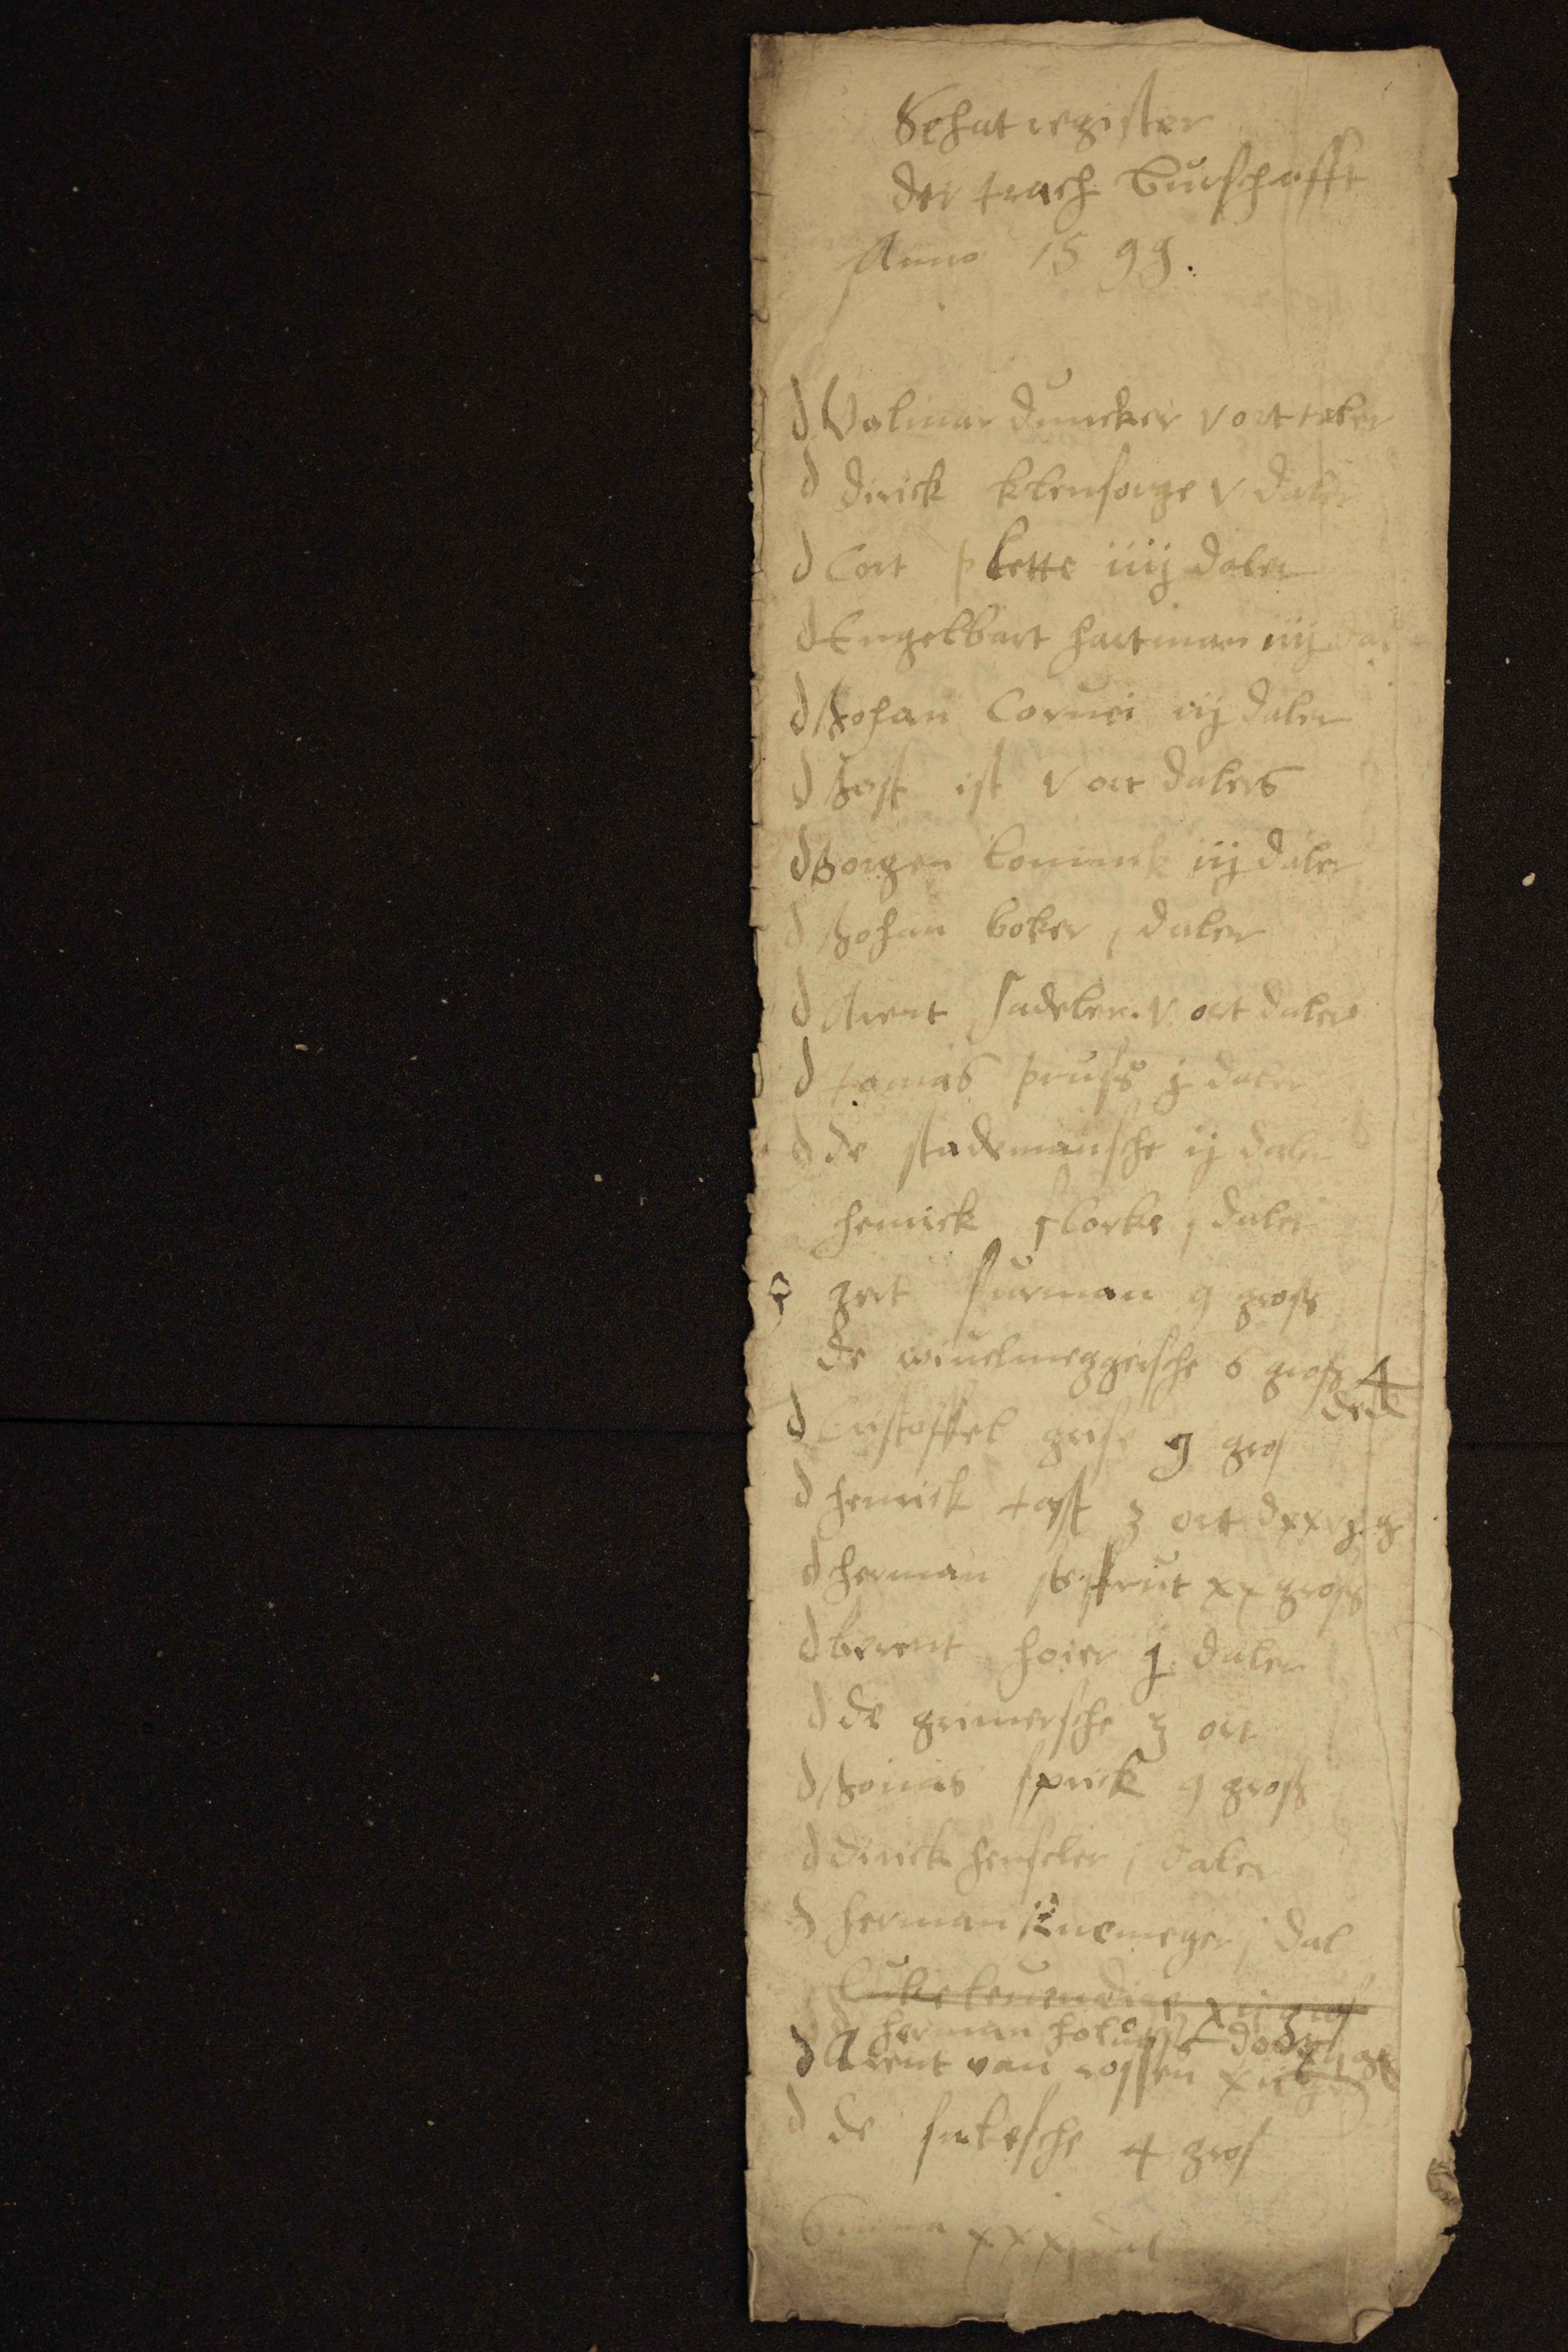 Schat register
der trach burschafft
Anno 1599.
d Volmar duncker v ort taler
d dirick klensorge v daler
d Cort plette iiij daler
d Engelbart hartman iiij da
d Johan Coruei iij daler
d Jost ist v ort dalers
d Jorgen konimk iij daler
d Johan boker j daler
d Arent sadeler. v ort daler
d tomas pruss j daler
d de stademansche ij daler
henrick florke j daler
gert furman 9 gross
de winelmeggersche 6 gross 4
d Cristoffel grise 9 gros
d henrick tast 3 ort d xxvj g
d herman xx gross
d berent hoier j daler
d de grimersche 3 ort
d Jonas sprick 9 gross
d dirick henseler j daler
d herman j dal
luke xii gros
herman
d Arent van rossen xii
d de sukesche 4 gros
Summa xxxj dal